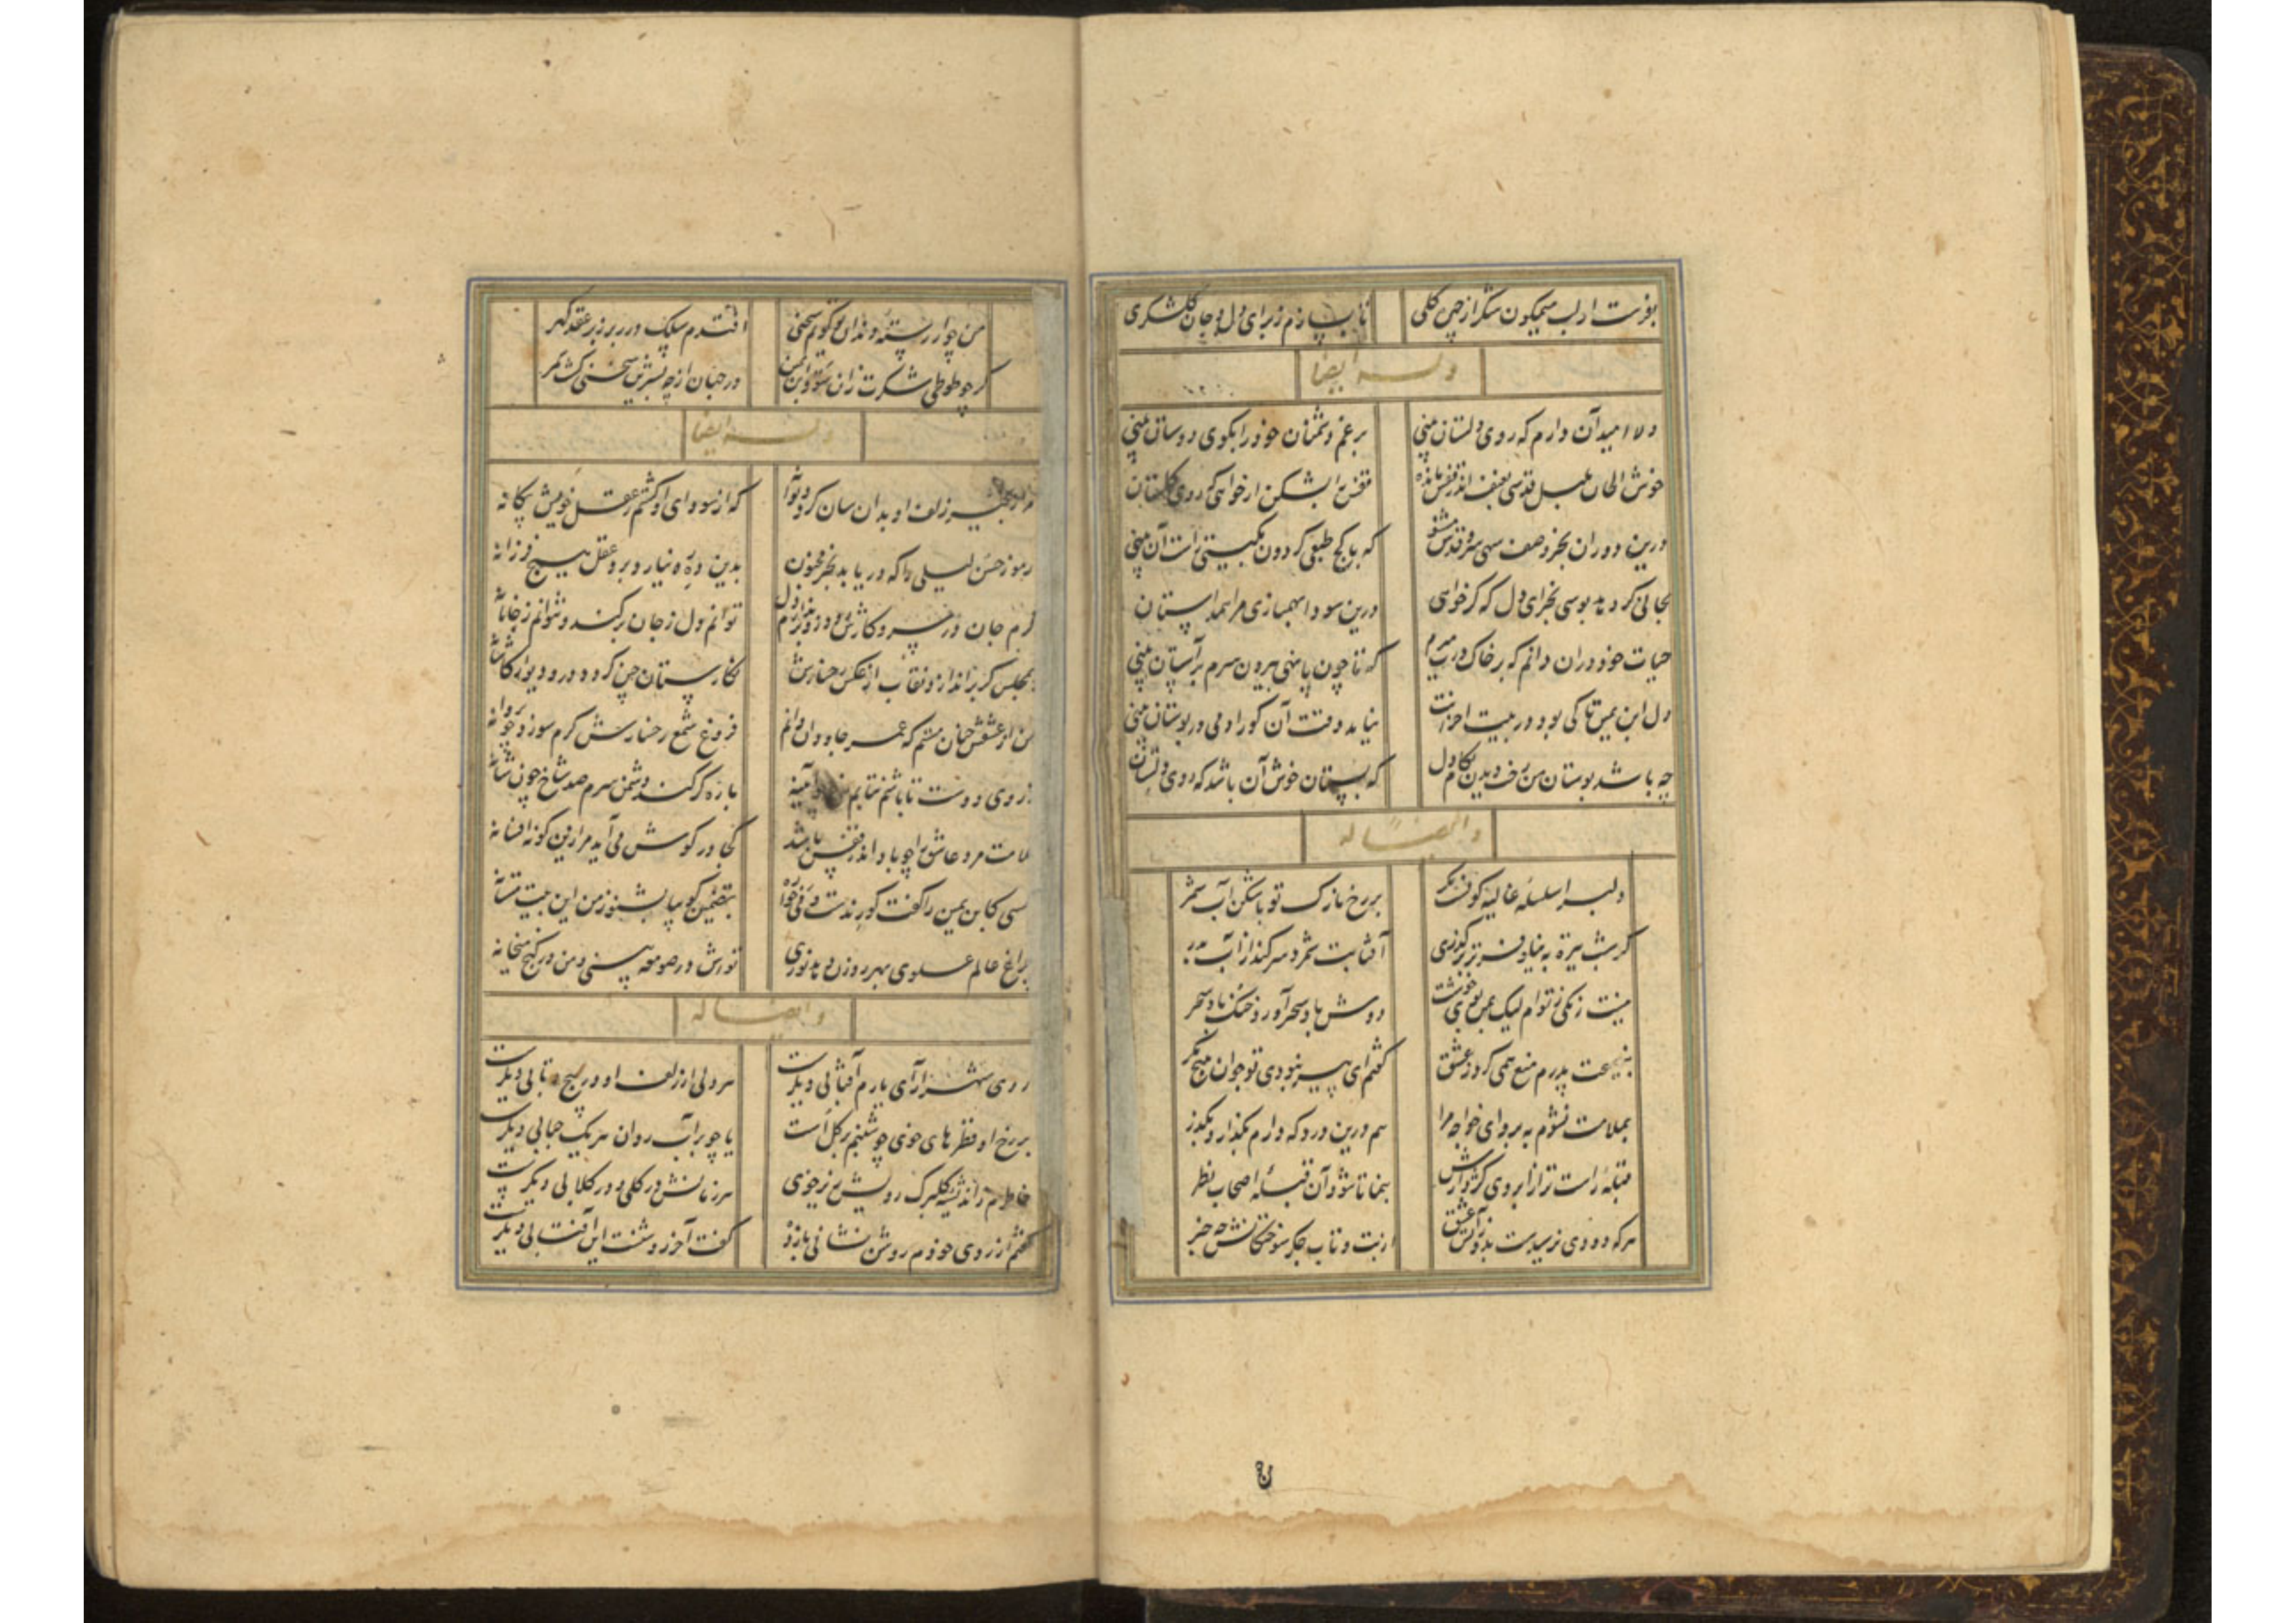 بفرست از لب میگون شکر از چین کلی تا بسازم ز برای دل و جان گلشکری
وله ایضا
دلا امید آن دارم که روی دلستان بینی برغم دشمنان خود را بکوی دوستان بینی
خوش الحان بلبل قدسی بعنف اندر قفس مانده قفس را بشکن ار خواهی که روی گلستان بینی
درین دوران بجز وصف سهی سرو قدش مشنو که با کج طبعی کردون بگیتی راست آن بینی
بجانی کر دهد بوسی بخر ای دل که کر خواهی درین سودا
حیات خود در آن دانم که بر خاک درت میرم که تا چون پا نهی بیرون سرم بر آستان بینی
دل ابن یمین تا کی بود در بیت احزانت نیامد وقت آن کو را دمی در بوستان بینی
چه باشد بوستان من رخت دیدن بکام دل که بستان خوش آن باشد که روی دلستان بینی
وایضا له
دلبرا سلسله غالیه کون بر رخ نازک تو با شکن آب شمر
کر شب تیره به بنیاد آفتابت شمرد سر کند از آب بدر
نیست زنگی ز توام لیک ببوی خوشت دوش باد سحر آورد خنک باد سحر
بنصیحت پدرم منع همی کرد ز عشق گفتم ای پیر نبودی تو جوان هیچ مگر
بملامت نشوم به برو ای خواجه مرا هم درین درد که دارم بگذار و بگذر
قبله راست تر از ابروی کژ دارش بنما تا شود آن قبله اصحاب نظر
هر که دودی نرسیدست بدو ز آتش عشق از تب و تاب جگر سوختگانش چه خبر
من چو از رسته دندان تو گویم سخنی افتدم سلک درر بر زبر عقد گهر
گر چو طوطی شکرت زان شود ابن یمین در جهان از چه بشیرین سخنی گشت سمر
وله ایضا
مرا زنجیر زلف او بدان سان کرد دیوانه که از سودای او گشتم ز عقل خویش بیگانه
رموز حسن لیلی را که دریابد بجز مجنون بدین ره ره نیارد برد عقل هیچ فرزانه
گرم جان در سر و کارش رود توانم دل ز جان برکند و نتوانم ز جانانه
بمجلس گر براندازد نقاب از عکس رخسارش نگارستان چین گردد در و دیوار کاشانه
من از عشقش چنان مستم که عمر جاودان دانم فروغ شمع رخسارش گرم سوزد چو پروانه
ز روی دوست تا باشم نتابم آیینه باره گر کند دشمن سرم صد شاخ چون شانه
ملامت مرد عاشق را چو باد اندر قفس باشد کجا در گوش می‌آید مرا زین گونه افسانه
کسی کابن یمین را گفت کو رندست بتضمین گو بیا بشنو ز من این بیت مستانه
چراغ عالم علوی بهر روزن دهد نوری تو رش در صومعه بینی و من در کنج میخانه
وایضا له
روی شهرآرای یارم آفتابی دیگرست هر دلی از زلف او در پیچ و تابی دیگرست
بر رخ او قطرهای خوی چو شبنم بر گل است یا چو بر آب روان هر یک حبابی دیگرست
خاطرم ز اندیشه گلبرگ رویش پر ز خوی هر زمانش در گلی و در گلابی دیگرست
گفتم از روی خودم روشن نشانی باز ده گفت آخر روشنست این آفتابی دیگرست